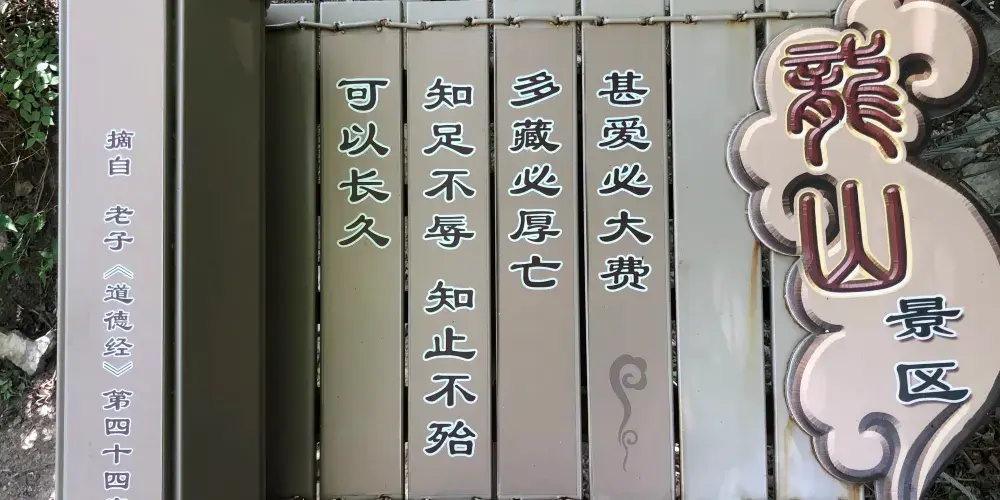 龍山
景区
甚爱必大费
多藏必厚亡
知足不辱 知止不殆
可以长久
摘自 老子《道德经》第四十四